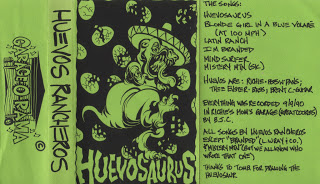 GARAGEOPHOBIA
HUEVOS RANCHEROS
HUEVOSAURUS
THE SONGS:
HUEVOSAURUS
BLONDE GIRL IN A BLUE VOLARÉ
(AT 100 MPH)
LATIN RANCH
I'M BRANDED
MIND SURFER
MISTERY MEN (SIC)
HUEVOS ARE: RICHIE - BASS/VANS;
THE EDGER - RIDS; BRENT C - GUITAR
EVERYTHING WAS RECORDED 9/9/90
IN RICHIE'S MOM'S GARAGE
BY B.J.C.
ALL SONGS BY HUEVOS RANCHEROS
EXCEPT "BRANDED" (L. WRAY + CO.)
+ MISTERY MEN (BUT WE ALL KNOW WHO
WROTE THAT ONE)
THANKS TO TOMB FOR DRAWING THE
HUEVOSAUR.